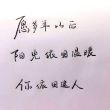 愿多年以后
阳光依旧温暖
你依旧迷人